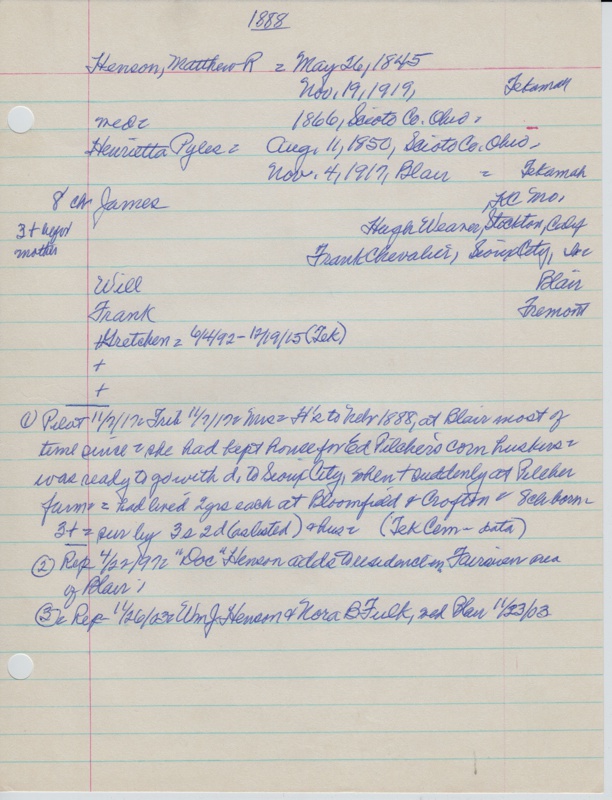 1888
Henson, Matthew R = May 26, 1845
Nov. 19, 1919, Tekamah
med= 1866, Scioto Co. Ohio.
Henrietta Pyles = Aug. 11, 1850, Scioto Co. Ohio.
Nov. 4, 1917, Blair = Tekamah
8 ch James , KC Mo.
3 + befor Hugh Weaver, Stockton,
mother Frank Chevalier, Sioux City,
Will Blair
Frank Fremont
Gretchen = 6/4/92 - 12/19/15 (Tek)
+
+
① Pilot 11/7/17= Trib 11/7/17= Mrs = H's to Nebr 1888, at Blair most of
time since = she had kept house for Ed Pilcher's corn huskers =
was ready to go with d. to Sioux City, when + suddenly at Pilcher
farm = had lived 2 yrs each at Bloomfield & Crofton = 8 ch born -
3+ = sur by 3 s 2 d (as listed) & hus = (Tek Cem - data)
② Rep 4/22/97= "Doc" Henson adds to residence in Fairview area
of Blair;
③= Rep - 11/26/03= Wm J. Henson & Nora B Fulk, med Blair 11/23/03